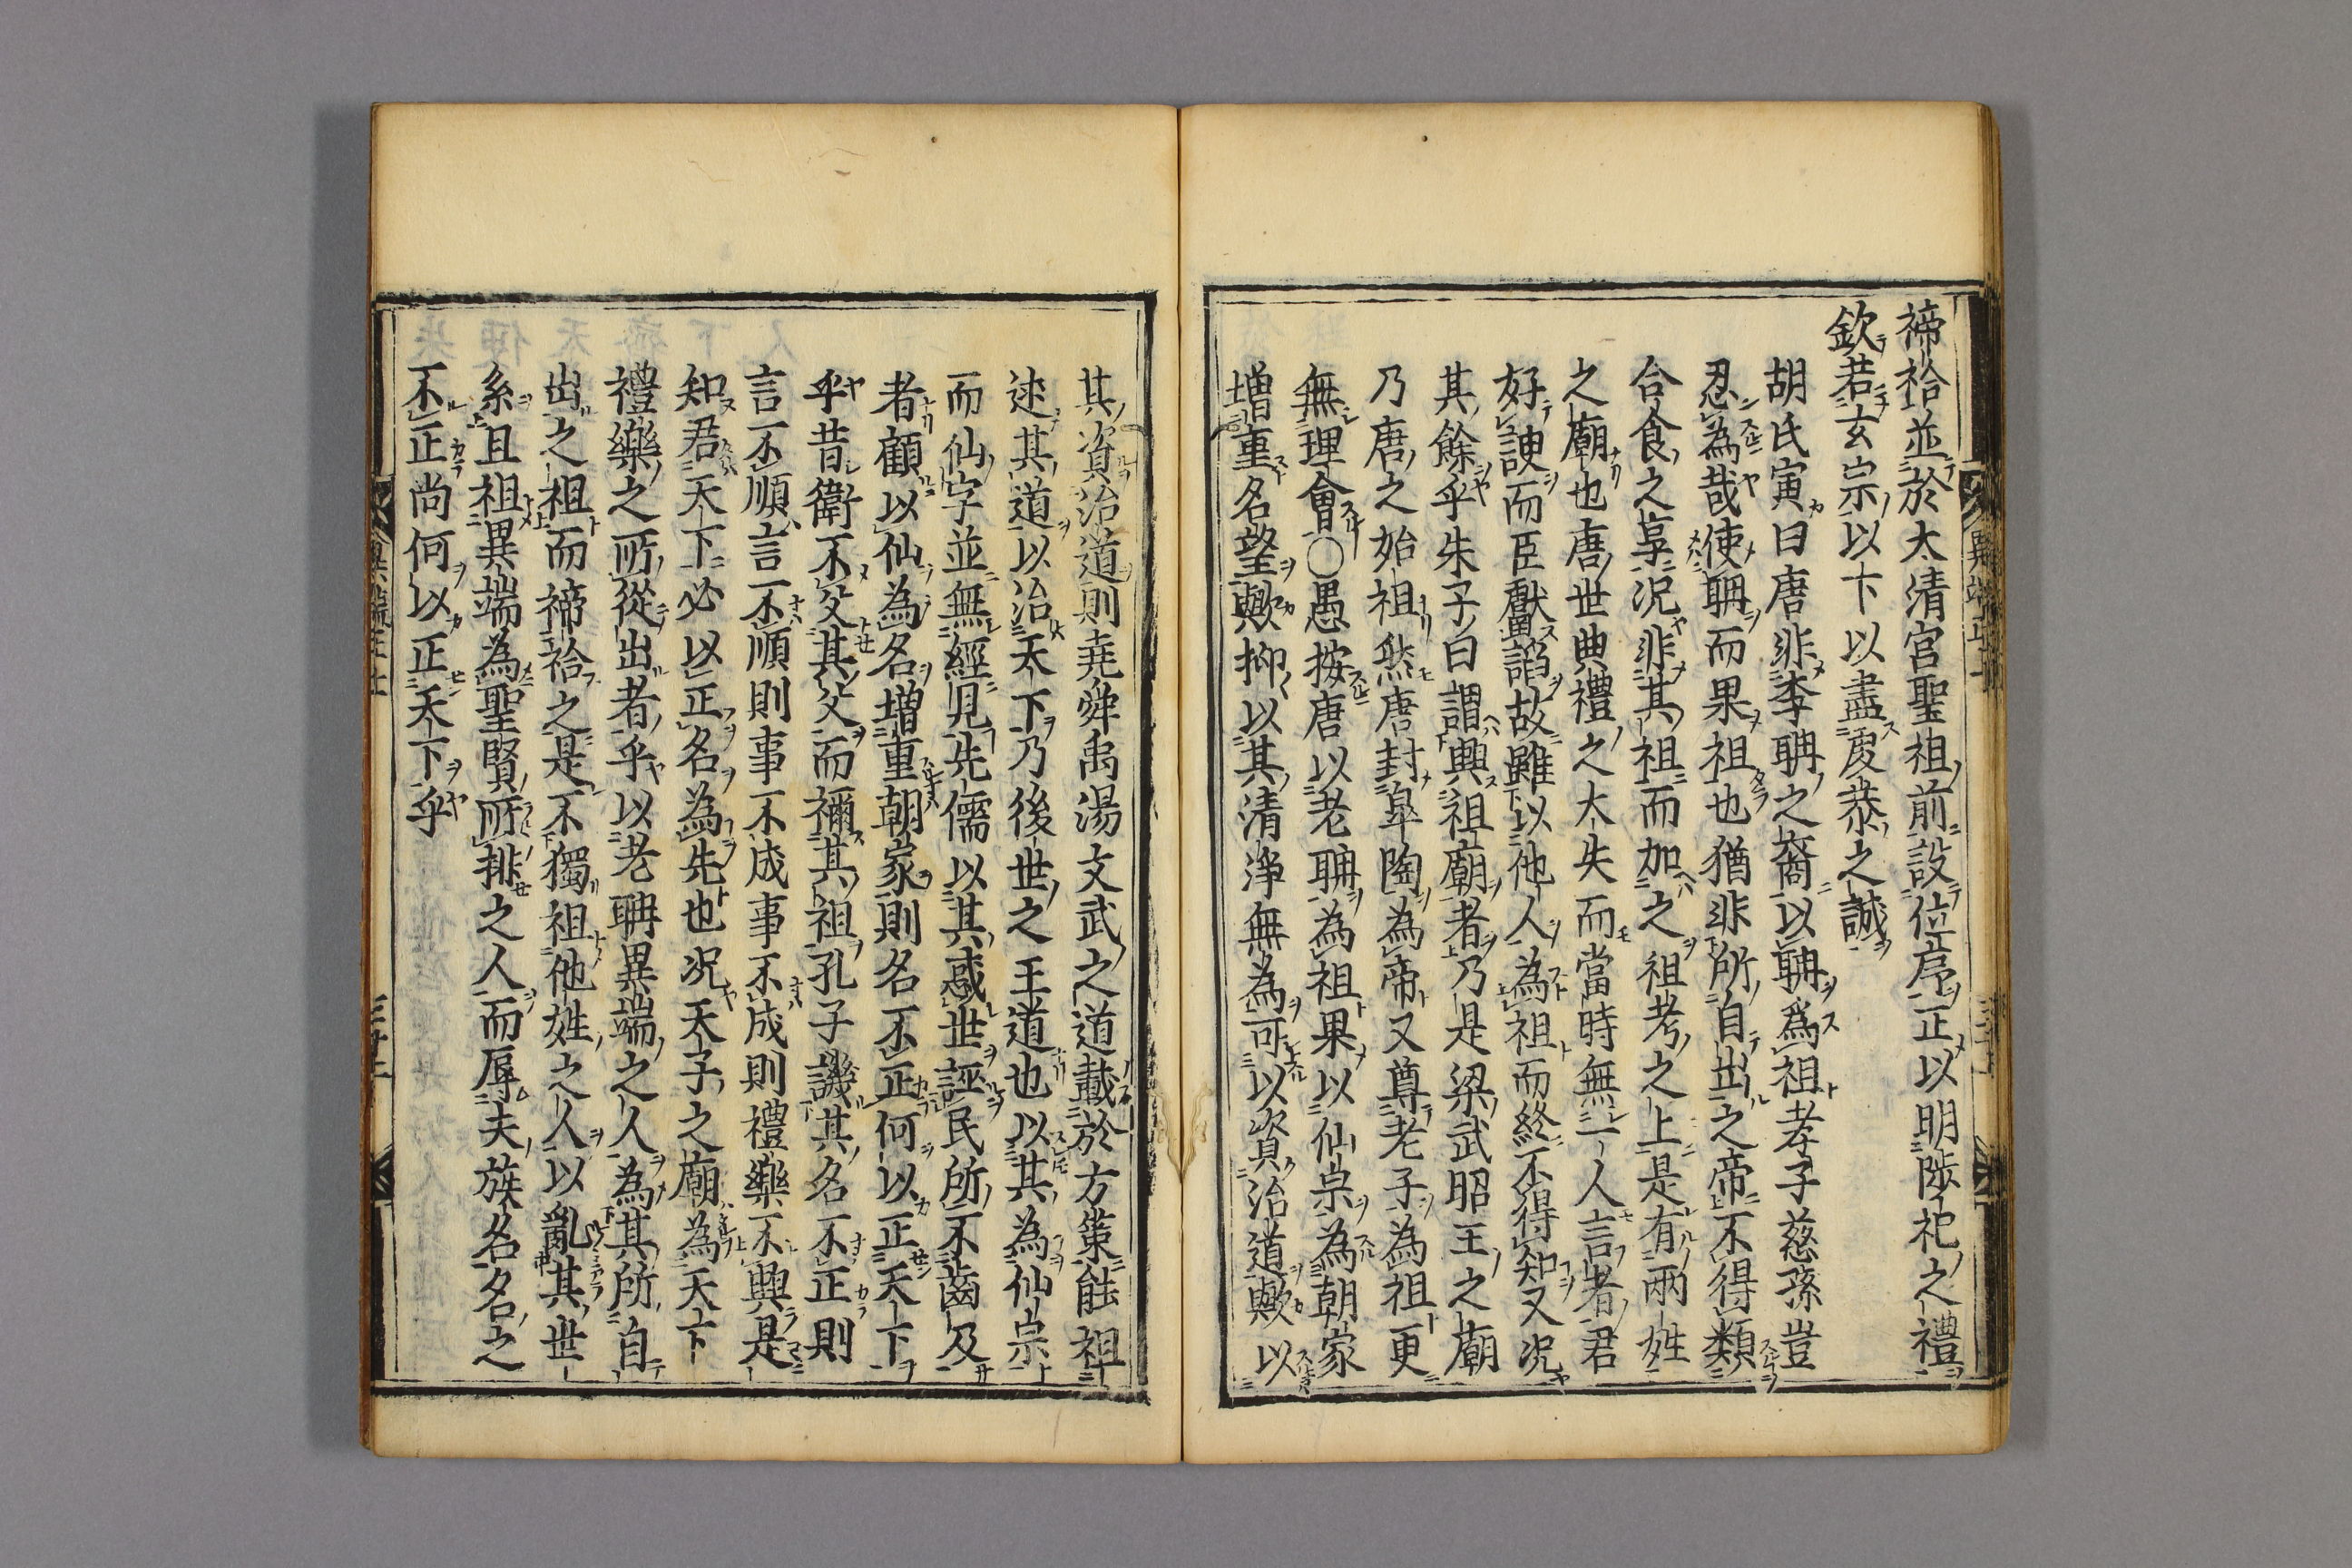 禘祫並於太清宮聖祖前設位序正以明陟祀之禮
欽若玄宗以下以盡虔恭之誠
胡氏寅曰唐非李聃之裔以聃爲祖孝子慈孫豈
忍為哉使聃而果祖也猶非所自出之帝不得類
合食之享况非其祖而加之祖考之上是有兩姓
之廟也唐世典禮之大失而當時無一人言者君
好諛而臣獻諂故雖以他人為祖而終不得知又况
其餘乎朱子曰謂興祖廟者乃是梁武昭王之廟
乃唐之始祖然唐封皐陶為帝又尊老子為祖更
無理會〇愚按唐以老聃為祖果以仙宗為朝家
增重名望歟抑以其清淨無為可以資治道歟以
其資治道則堯舜禹湯文武之道載於方策能祖
述其道以治天下乃後世之王道也以其為仙宗
而仙字並無經見先儒以其惑世誣民所不齒及
者顧以仙為名增重朝家則名不正何以正天下
乎昔衛不父其父而禰其祖孔子譏其名不正則
言不順言不順則事不成事不成則禮樂不興是
知君天下必以正名為先也况天子之廟為天下
禮樂之所從出者乎以老聃異端之人為其所自
出之祖而禘祫之是不獨祖他姓之人以亂其世
系且祖異端為聖賢所排之人而辱夫族名名之
不正尚何以正天下乎